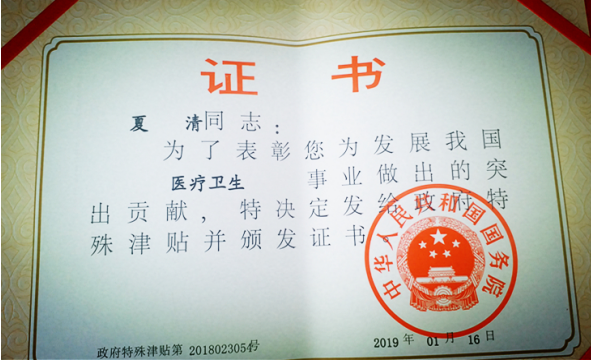 证 书
夏 清同志：
为了表彰您为发展我国
医疗卫生 事业做出的突
出贡献，特决定发给政府特
殊津贴并颁发证书
中华人民共和国国务院
政府特殊津贴第 2018023054号
2019 年 01 月 16 日